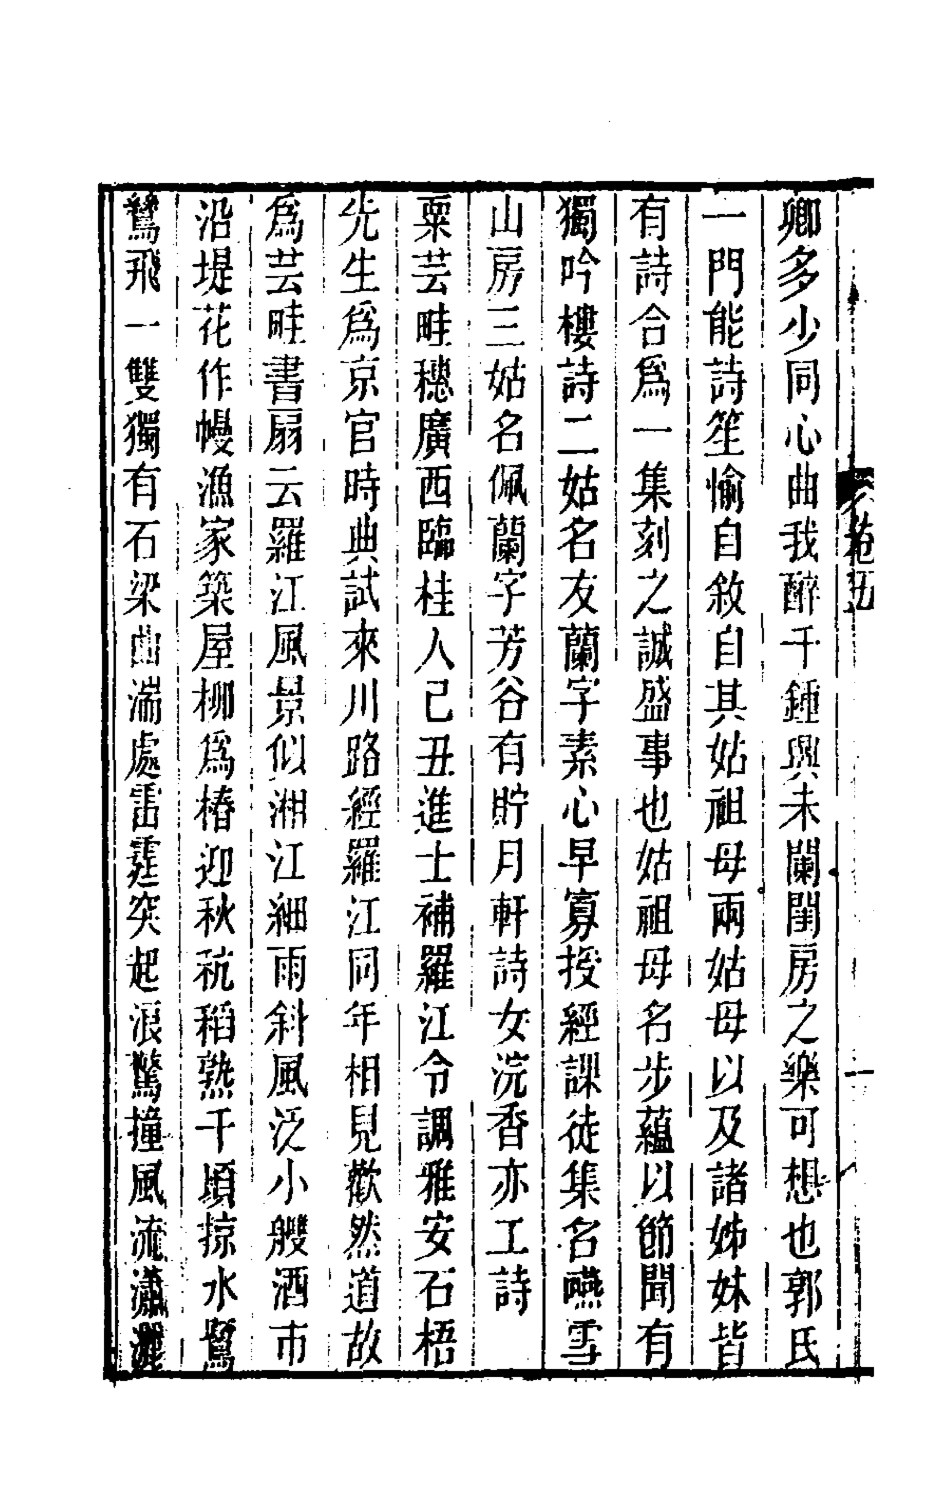 卷五
一
卿多少同心曲我醉千鍾興未闌閨房之樂可想也郭氏
一門能詩笙愉自敘自其姑祖母兩姑母以及諸姊妹皆
有詩合爲一集刻之誠盛事也姑祖母名步蘊以節聞有
獨吟樓詩二姑名友蘭字素心早寡授經課徒集名嚥雪
山房三姑名佩蘭字芳谷有貯月軒詩女浣香亦工詩
粟芸畦穗廣西臨桂人己丑進士補羅江令調雅安石梧
先生爲京官時典試來川路經羅江同年相見歡然道故
爲芸畦書扇云羅江風景似湘江細雨斜風泛小艭酒市
沿堤花作幔漁家築屋柳爲樁迎秋秔稻熟千頃掠水鴛
鴦飛一雙獨有石梁曲湍處雷霆突起浪驚撞風流瀟灑